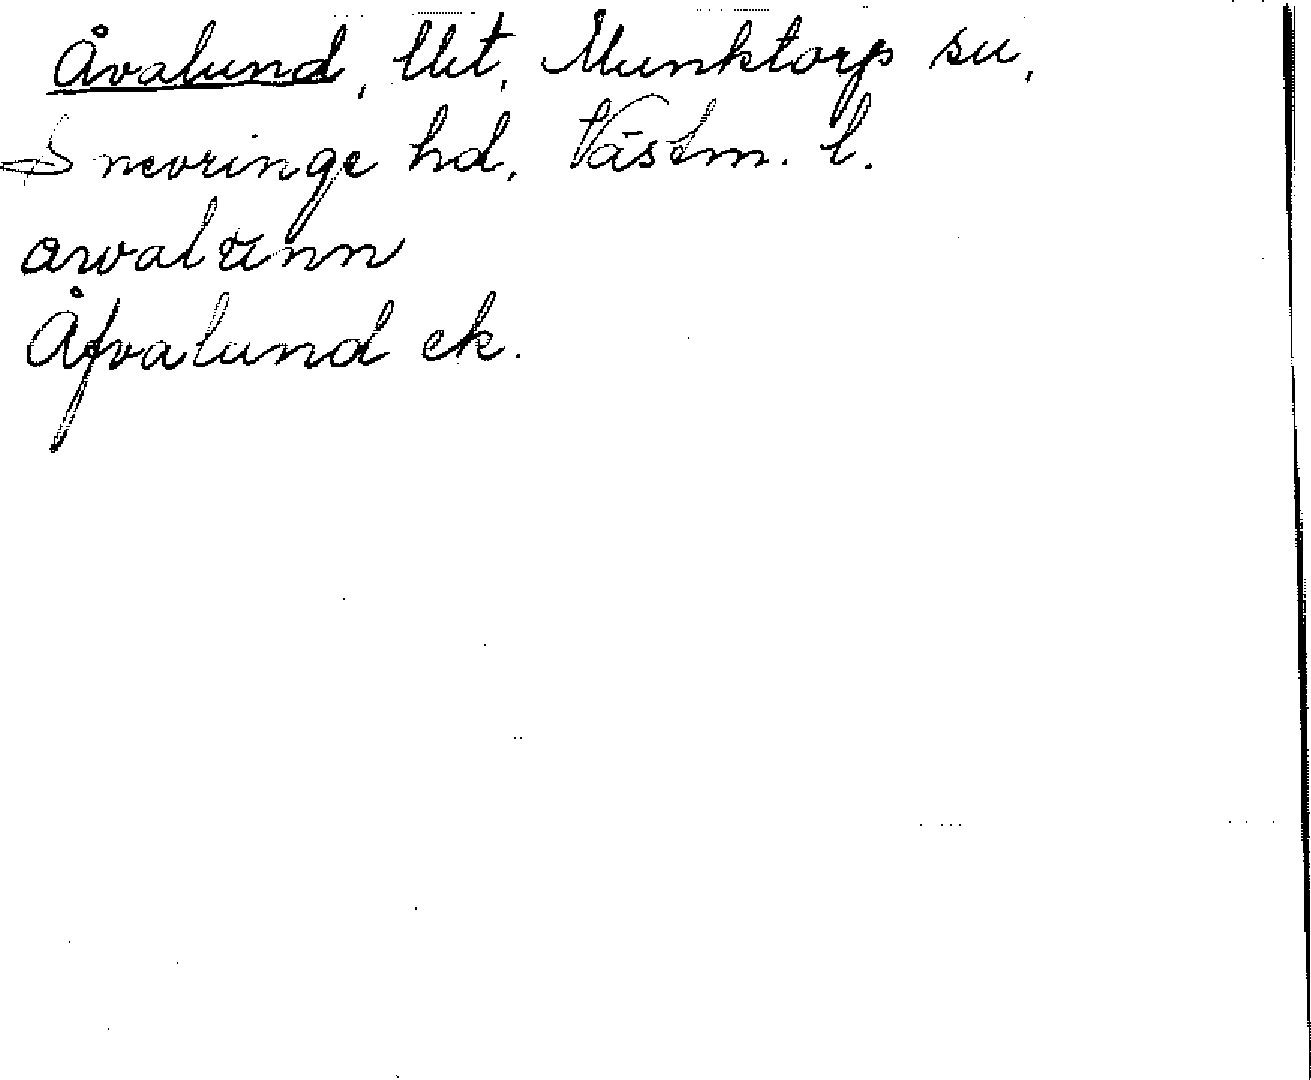 Åvalund, lht, Munktorp sn,
Snevringe hd, Västm. l.
Åfvalund ek.